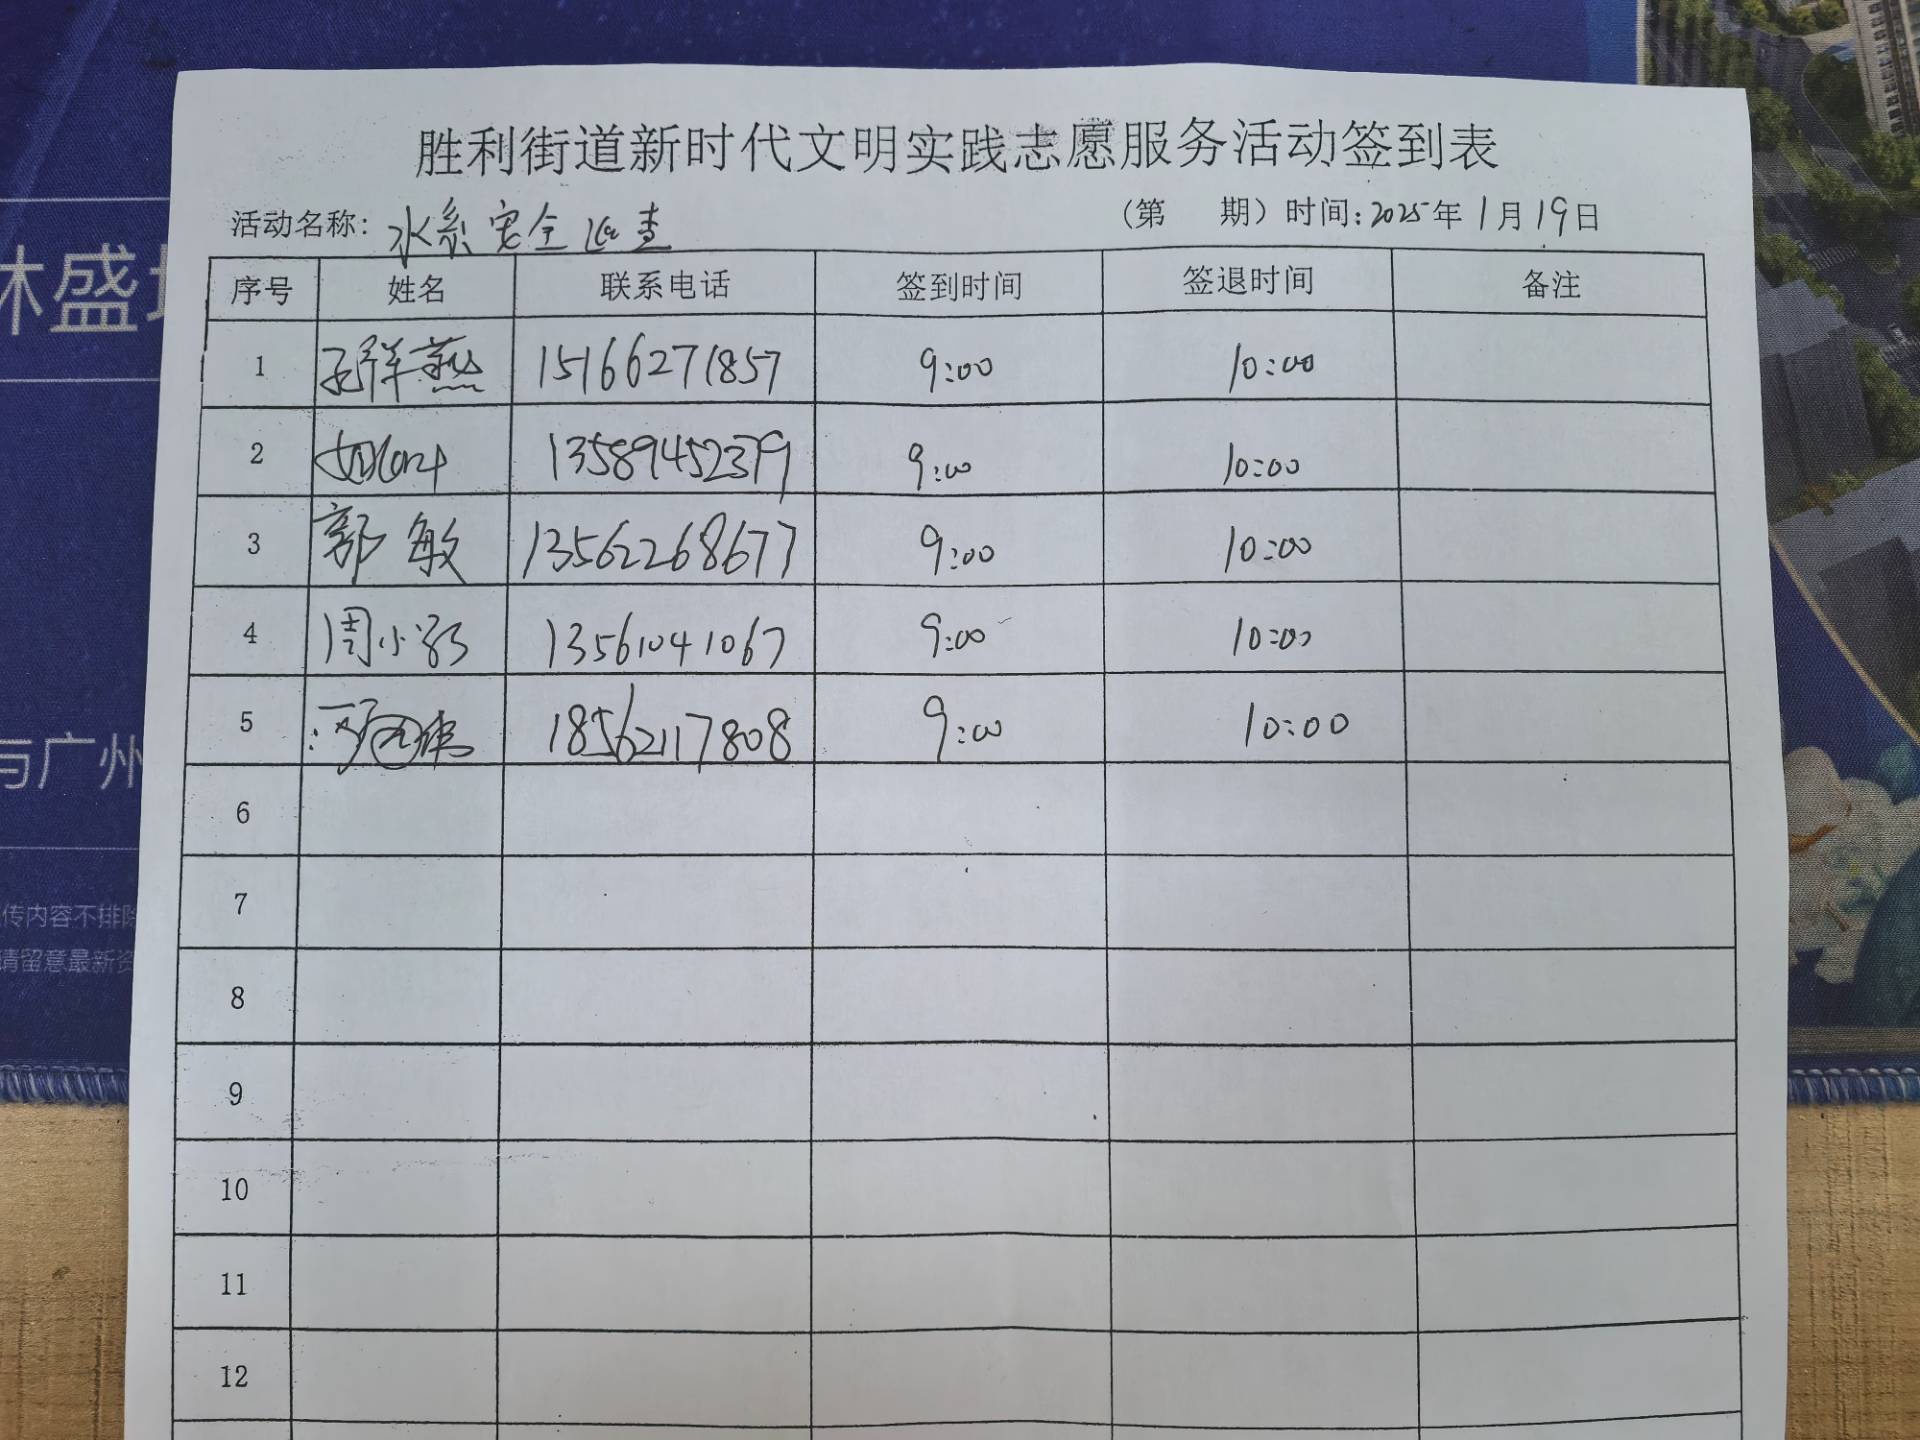 林盛
与广州
传内容不排除
请留意最新资
胜利街道新时代文明实践志愿服务活动签到表
活动名称：水系安全巡查 （第 期）时间：2025年1月19日
序号 姓名 联系电话 签到时间 签退时间 备注
1 15166271857 9:00 10:00
2 13589452379 9:00 10:00
3 郭敏 13562268677 9:00 10:00
4 周小 13561041067 9:00 10:00
5 18562117808 9:00 10:00
6
7
8
9
10
11
12